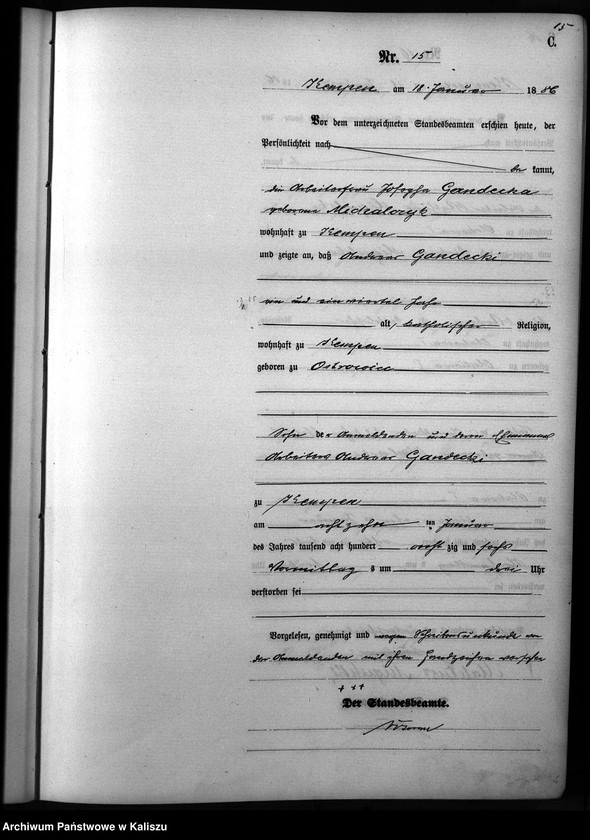 15
C.
Nr. 15
Kempen am 18. Januar 1886
Vor dem unterzeichneten Standesbeamten erschien heute, der
Persönlichkeit nach
be kannt,
die Arbeiterfrau Josepha Gandecka
geborene
wohnhaft zu Kempen
und zeigte an, daß Andreas Gandecki
ein und ein viertel Jahr
alt, katholischer Religion,
wohnhaft zu Kempen
geboren zu Ostrowiec
Sohn der Anmeldenden und deren Ehemannes
Arbeiters Andreas Gandecki
zu Kempen
am achtzehn ten Januar
des Jahres tausend acht hundert acht zig und sechs
Vormittag s um drei Uhr
verstorben sei
Vorgelesen, genehmigt und wegen Schreibensunkunde von
der Anmeldenden mit ihrem Handzeichen versehen
+++
Der Standesbeamte.
Archiwum Państwowe w Kaliszu